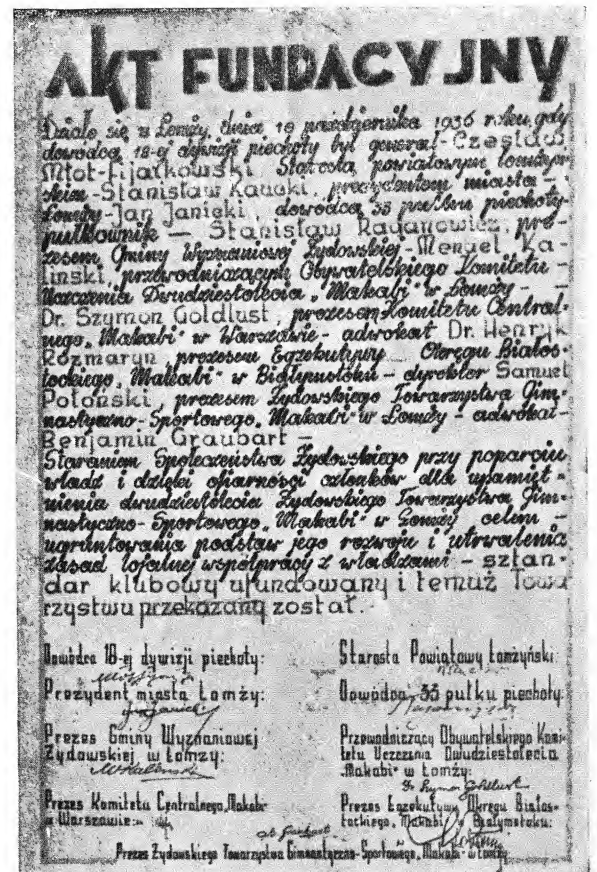 AKT FUNDACYJNY
Działo się w Łomży, dnia 18 października 1936 roku, gdy
dowódcą 18-ej dywizji piechoty był generał - Czesław
Młot-Fijałkowski Starostą powiatowym łomżyń-
skim - Stanisław Kaucki, prezydentem miasta -
Łomży - Jan Janicki, dowódcą 33 pułku piechoty-
pułkownik — Stanisław pre-
zesem Gminy Wyznaniowej Żydowskiej - Menuel Ka-
linski, przewodniczącym Obywatelskiego Komitetu -
Uczczenia Dwudziestolecia „Makabi" w Łomży —
Dr. Szymon Goldlust, prezesem Komitetu Central-
nego „Makabi" w Warszawie - adwokat Dr. Henryk
Rozmaryn, prezesem Egzekutywy Okręgu Białos-
tockiego „Makabi" w Białymstoku - dyrektor Samuel
Połoński, prezesem Żydowskiego Towarzystwa Gim-
nastyczno-Sportowego „Makabi" w Łomży - adwokat -
Benjamin Graubart —
Staraniem Społeczeństwa Żydowskiego przy poparciu
władz i dzięki ofiarności członków dla upamięt-
nienia dwudziestolecia Żydowskiego Towarzystwa Gim-
nastyczno-Sportowego „Makabi" w Łomży celem -
ugruntowania podstaw jego rozwoju i utrwalenia
zasad lojalnej współpracy z władzami - sztan-
dar klubowy ufundowany i temuż Towa
rzystwu przekazany został.
Dowódca 18-ej dywizji piechoty:
Starosta Powiatowy Łomżyński:
Prezydent miasta Łomży:
Dowódca 33 pułku piechoty
Prezes Gminy Wyznaniowej
Żydowskiej w Łomży:
Przewodniczący Obywatelskiego Komi-
tetu Uczczenia Dwudziestolecia
„Makabi" w Łomży:
Dr Szymon Goldlust
Prezes Komitetu Centralnego „Makabi"
w Warszawie:
Prezes Egzekutywy Okręgu Białos-
tockiego, „Makabi" w Białymstoku:
Prezes Żydowskiego Towarzystwa Gimnastyczno-Sportowego, „Makabi" w Łomży